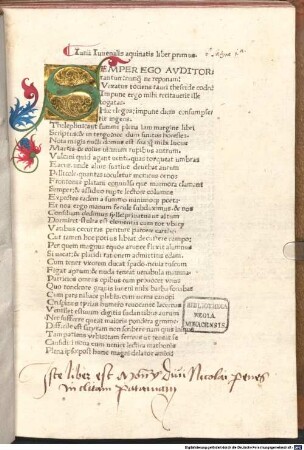 Iunii Iuuenalis aquinatis liber primus.
SEMPER EGO AVDITOR
tantum: nunq ne reponam
Vexatus totiens rauci theseide codri
Impune ergo mihi recitauerit ille
togatas
Hic elegos: impune diem consumpserit
ingens
Thelephus: aut summi plena iam margine libri
Scriptus & in tergo nec dum finitus horestes
Nota magis nulli domus est sua q mihi lucus
Martis & eoliis uicinum rupibus antrum
Vulcani quid agant uenti: quas torqueat umbras
Eacus: unde alius furtiue deuehat aurum
Pellicule: quantas iaculetur monicus ornos
Frontonis platani conuulsaque marmora clamant
Semper & assiduo rupte lectore columne
Expectes eadem a summo minimoque poeta
Et nos ergo manum ferule subduximus & nos
Consilium dedimus sylle priuatus ut altum
Dormiret stulta est clementia cum tot ubique
Vatibus occurras periture parcere carthe
Cur tamen hoc potius libeat decurrere campo
Per quem magnus equos aurunce flexit alumnus
Si uacat & placidi rationem admittitis edam
Cum tener uxorem ducat spado meuia tuscum
Figat aprum & nuda teneat uenabula mamma
Patricios omnis opibus cum prouocet unus
Quo tondente grauis iuueni mihi barba sonabat
Cum pars niliace plebis cum uerna canopi
Crispinus tyrias humero reuocante lacernas
Ventilet estiuum digitis sudantibus aurum
Nec sufferre queat maioris pondera gemme
Difficile est satyram non scribere nam quis inique
Tam patiens urbis: tam ferreus ut teneat se
Causidici noua cum ueniat lectica mathonis
Plena ipso post hunc magni delator amici
BIBLIOTHECA
REGIA
MONACENSIS
Iste liber est